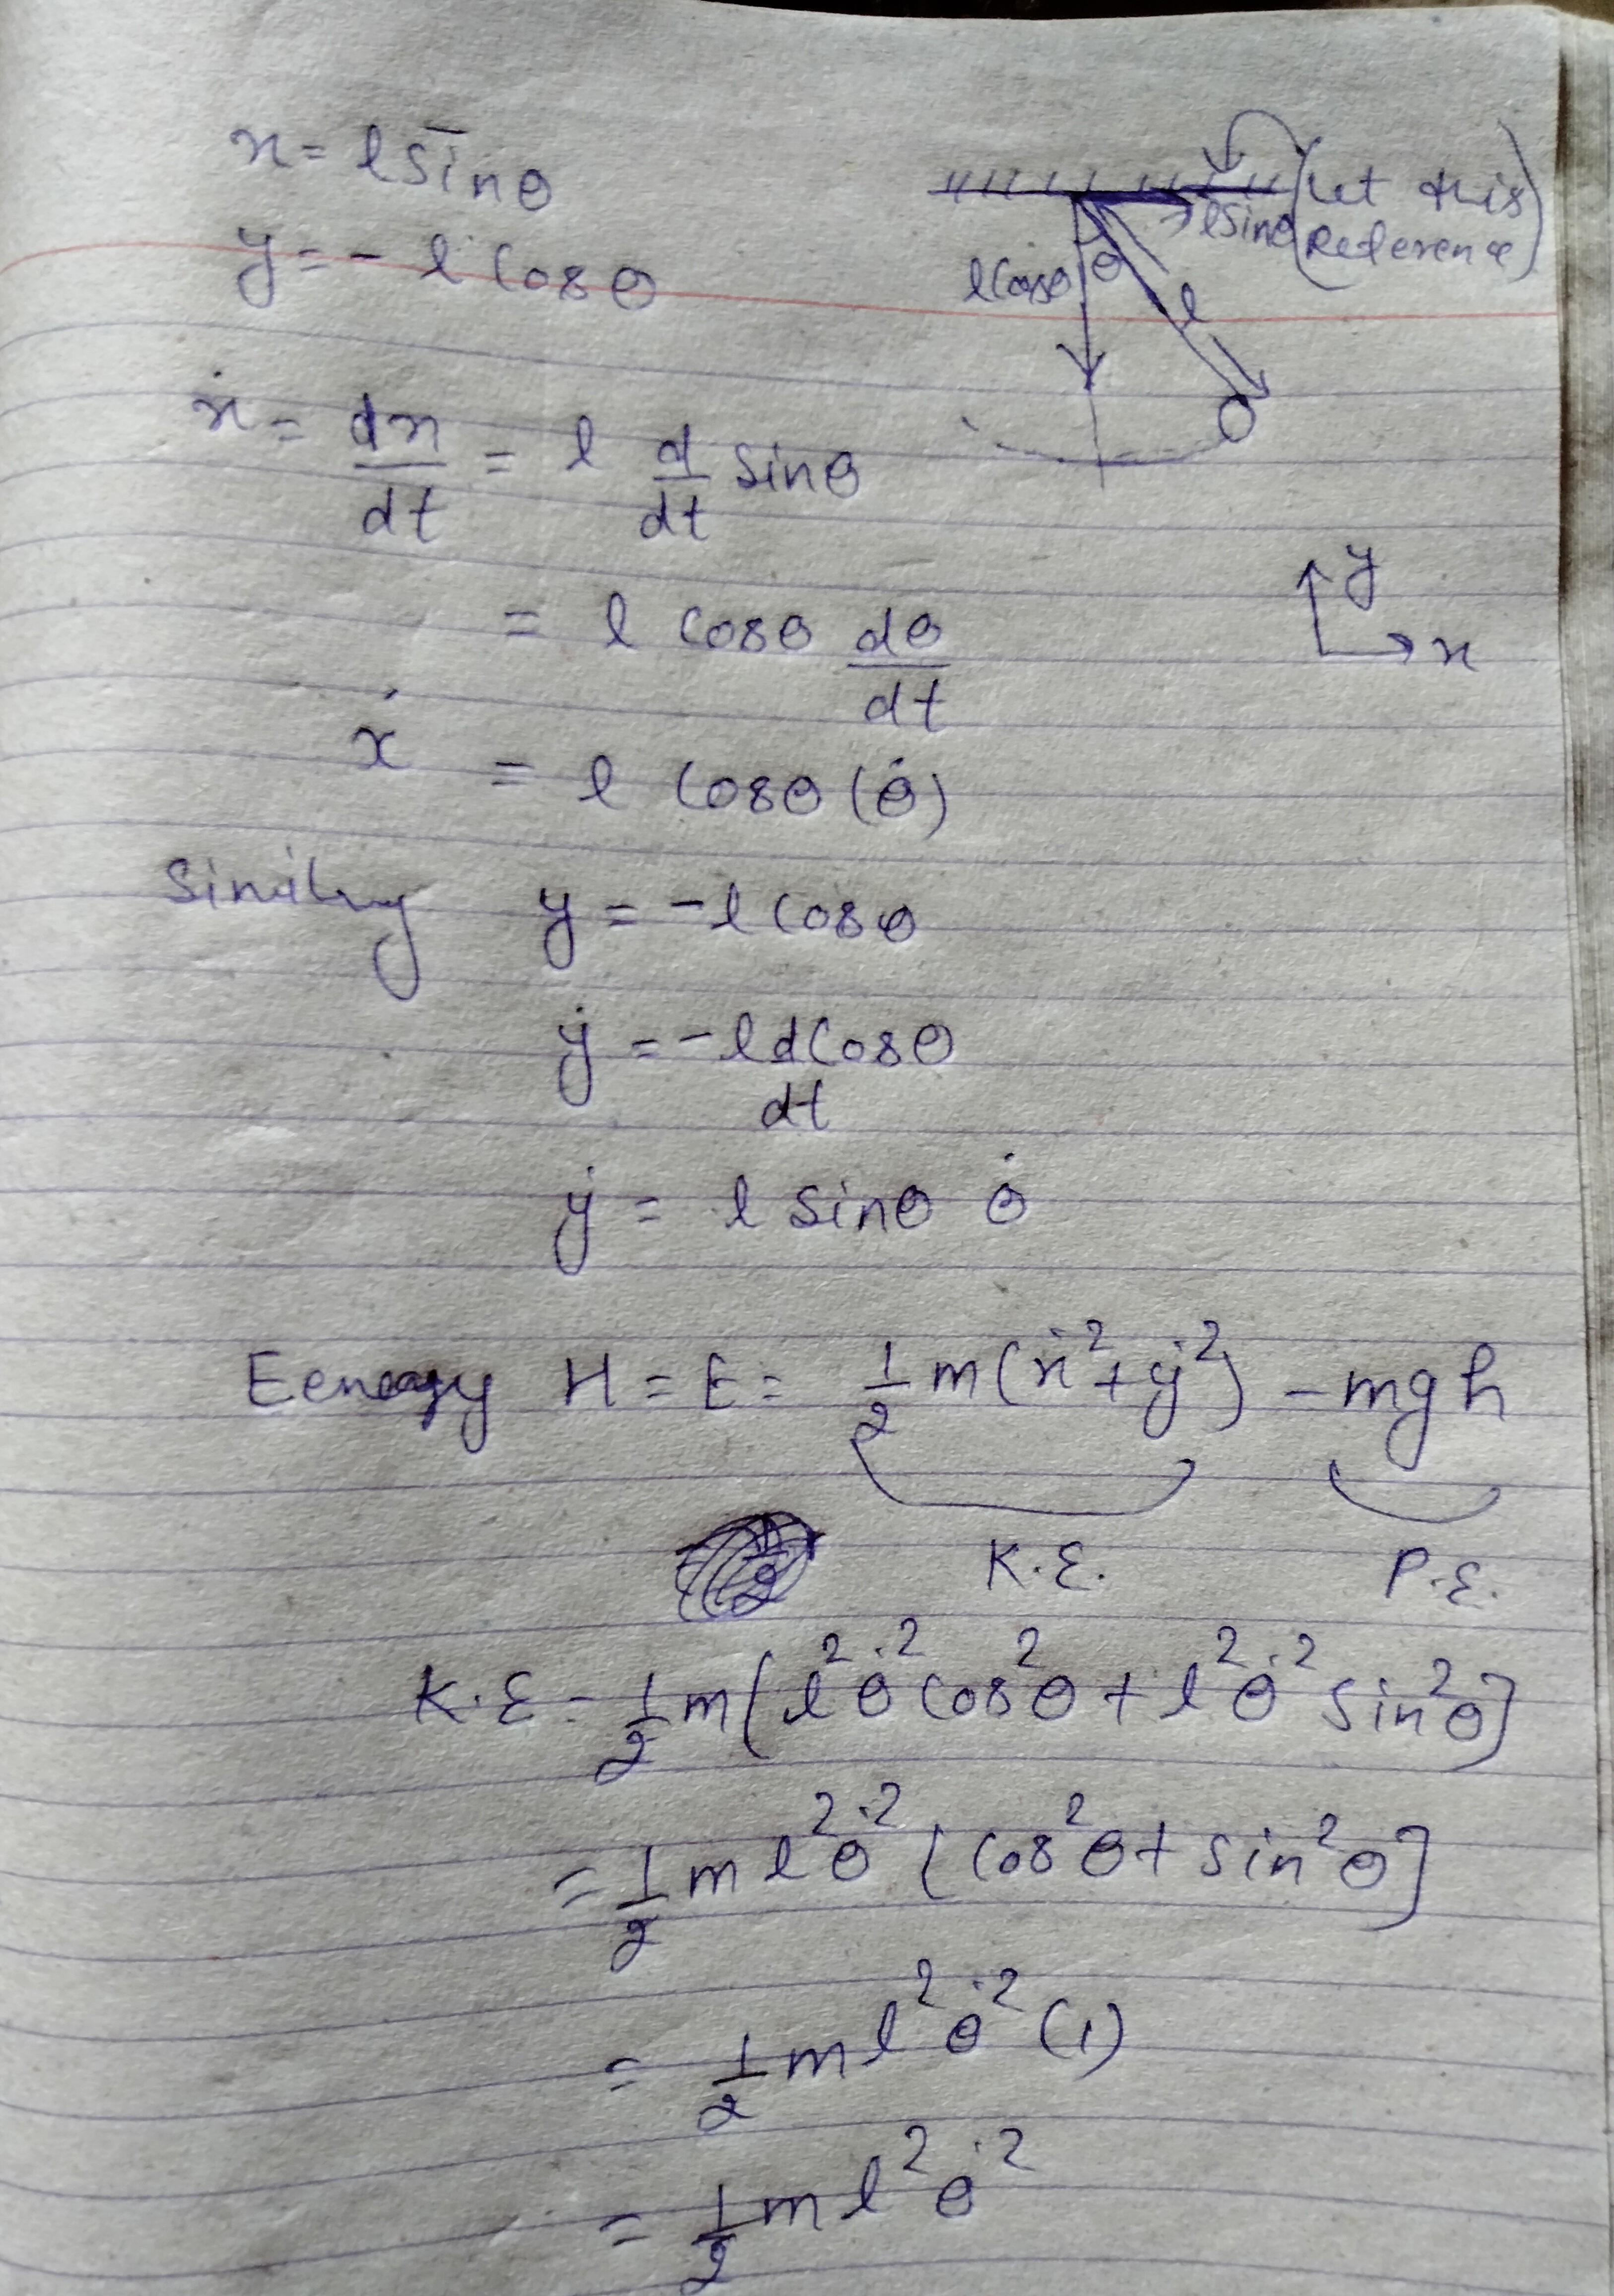 x = l sinθ
y = - l cosθ
(Let this Reference)
l sinθ
l cosθ θ l
ẋ = dx/dt = l d/dt sinθ
y
x
= l cosθ dθ/dt
ẋ = l cosθ (θ̇)
Similry y = -l cosθ
ẏ = -l d cosθ/dt
ẏ = l sinθ θ̇
Eenergy H = E = 1/2 m(ẋ² + ẏ²) - mgh
K.E. P.E.
K.E = 1/2 m[l²θ̇² cos²θ + l²θ̇² sin²θ]
= 1/2 m l²θ̇² [cos²θ + sin²θ]
= 1/2 m l²θ̇² (1)
= 1/2 m l²θ̇²